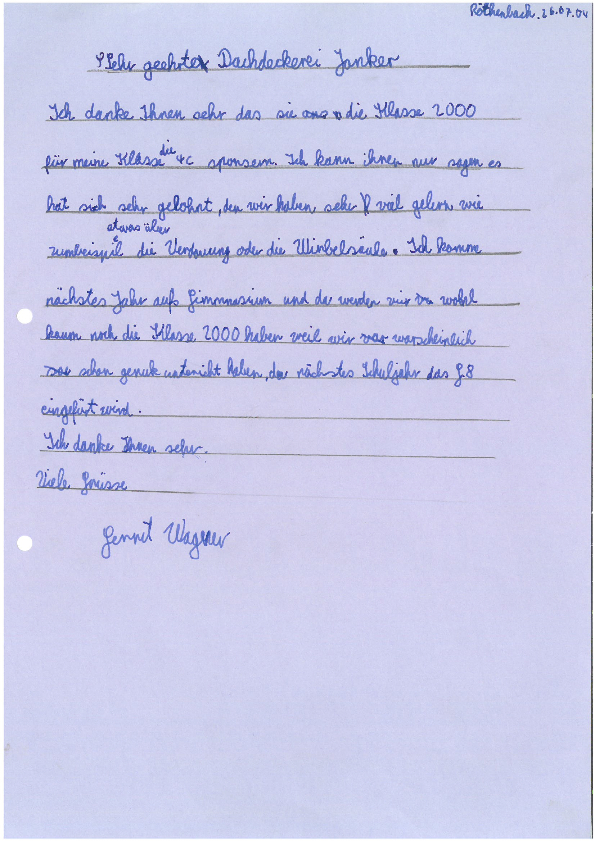 Röthenbach, 26.07.04
Sehr geehrte Dachdeckerei Janker
Ich danke Ihnen sehr das sie uns die Klasse 2000
für meine Klasse die 4c sponsern. Ich kann ihnen nur sagen es
hat sich sehr gelohnt, den wir haben sehr viel gelern wie
zumbeispiel etwas über die Verdauung oder die Wirbelsäule. Ich komme
nächstes Jahr aufs Gimmnasium und da werden wir wohl
kaum noch die Klasse 2000 haben weil wir warscheinlich
schon genuk unterricht haben, da nächstes Schuljahr das G8
eingefürt wird.
Ich danke Ihnen sehr.
Viele Grüsse
Wagner